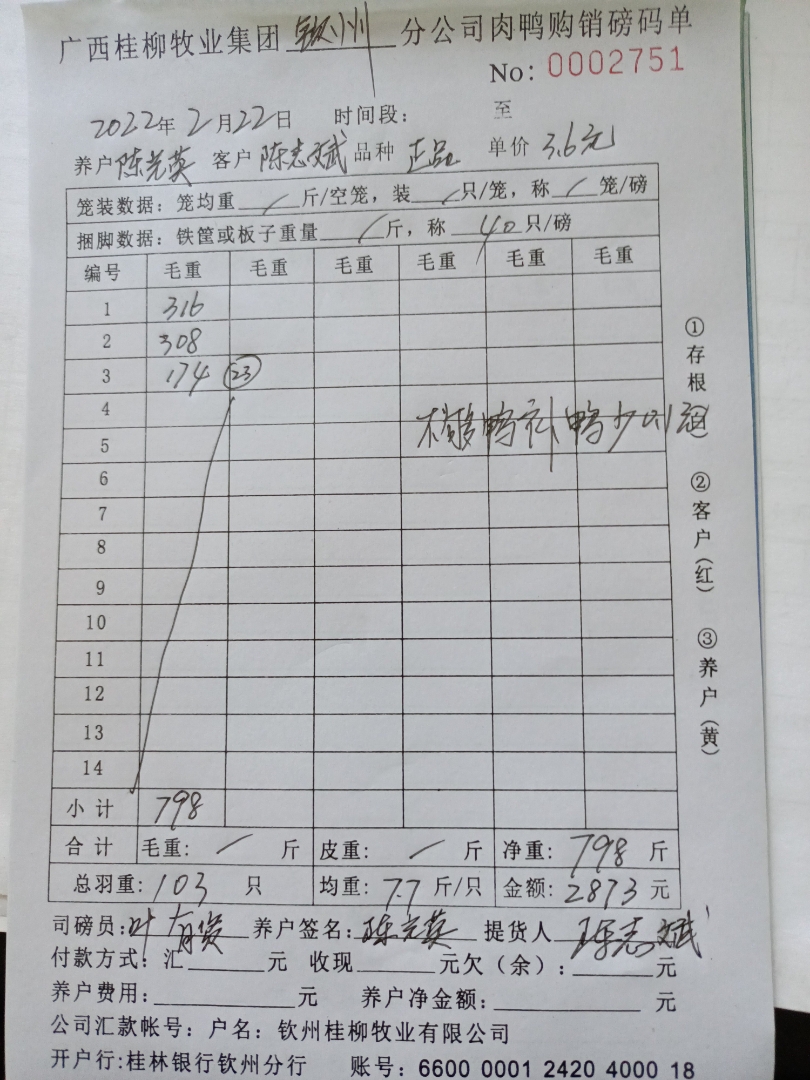 广西桂柳牧业集团 钦州 分公司肉鸭购销磅码单
No: 0002751
2022年2月22日 时间段: 至
养户 陈光英 客户 陈志斌 品种 正品 单价 3.6元
笼装数据: 笼均重 / 斤/空笼, 装 / 只/笼, 称 / 笼/磅
捆脚数据: 铁筐或板子重量 / 斤, 称 40 只/磅
编号 毛重 毛重 毛重 毛重 毛重 毛重
1 316
2 308
3 174 23
4
5
鸭 补 鸭少0.1
6
7
8
9
10
11
12
13
14
小计 798
合计 毛重: / 斤 皮重: / 斤 净重: 798 斤
总羽重: 103 只 均重: 7.7 斤/只 金额: 2873 元
司磅员: 叶有贤 养户签名: 陈光英 提货人 陈志斌
付款方式: 汇 元 收现 元欠(余): 元
养户费用: 元 养户净金额: 元
公司汇款帐号: 户名: 钦州桂柳牧业有限公司
开户行:桂林银行钦州分行 账号: 6600 0001 2420 4000 18
①存根
②客户(红)
③养户(黄)